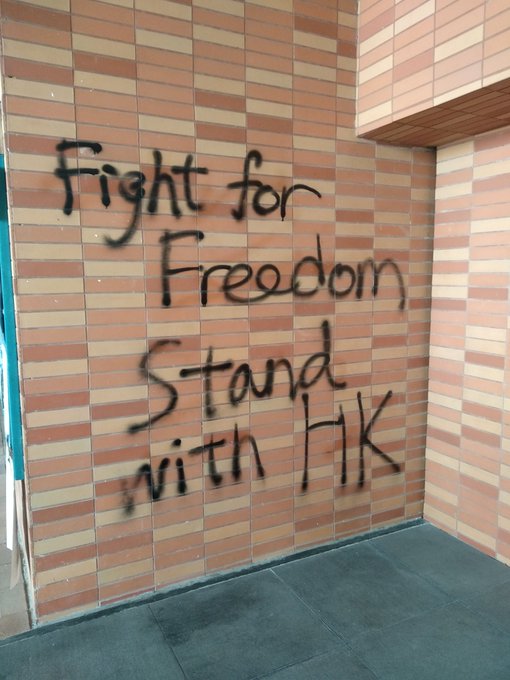 Fight for
Freedom
Stand
with HK